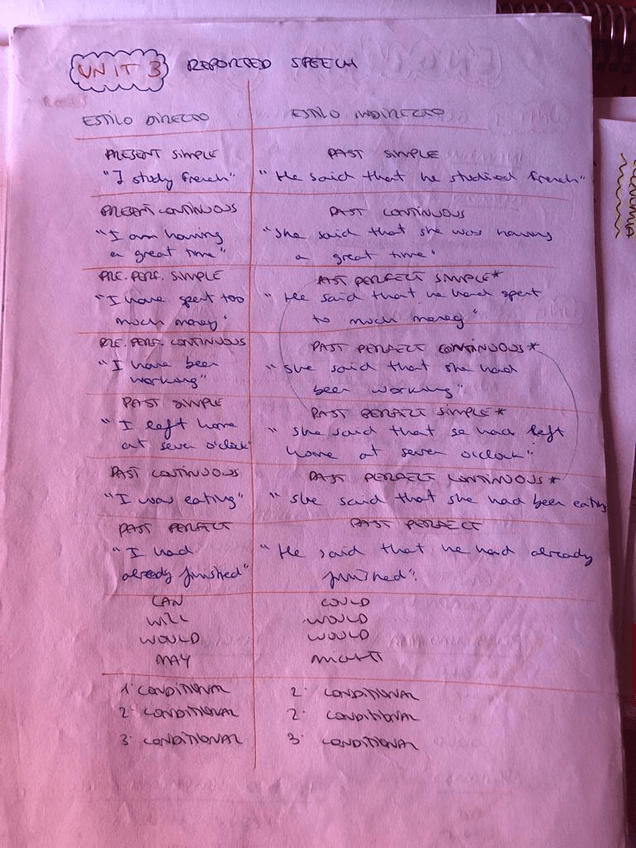 UNIT 3 REPORTED SPEECH
ESTILO DIRECTO ESTILO INDIRECTO
PRESENT SIMPLE PAST SIMPLE
"I study french" "He said that he studied french"
PRESENT CONTINUOUS PAST CONTINUOUS
"I am having "She said that she was having
a great time" a great time"
PRE. PERF. SIMPLE PAST PERFECT SIMPLE*
"I have spent too "He said that he had spent
much money" to much money"
PRE. PERF. CONTINUOUS PAST PERFECT CONTINUOUS*
"I have been "She said that she had
working" been working"
PAST SIMPLE PAST PERFECT SIMPLE*
"I left home "She said that se had left
at seven o'clock" home at seven o'clock"
PAST CONTINUOUS PAST PERFECT CONTINUOUS*
"I was eating" "She said that she had been eating
PAST PERFECT PAST PERFECT
"I had "He said that he had already
already finished" finished".
CAN COULD
WILL WOULD
WOULD WOULD
MAY MIGHT
1º CONDITIONAL 2º CONDITIONAL
2º CONDITIONAL 2º CONDITIONAL
3º CONDITIONAL 3º CONDITIONAL